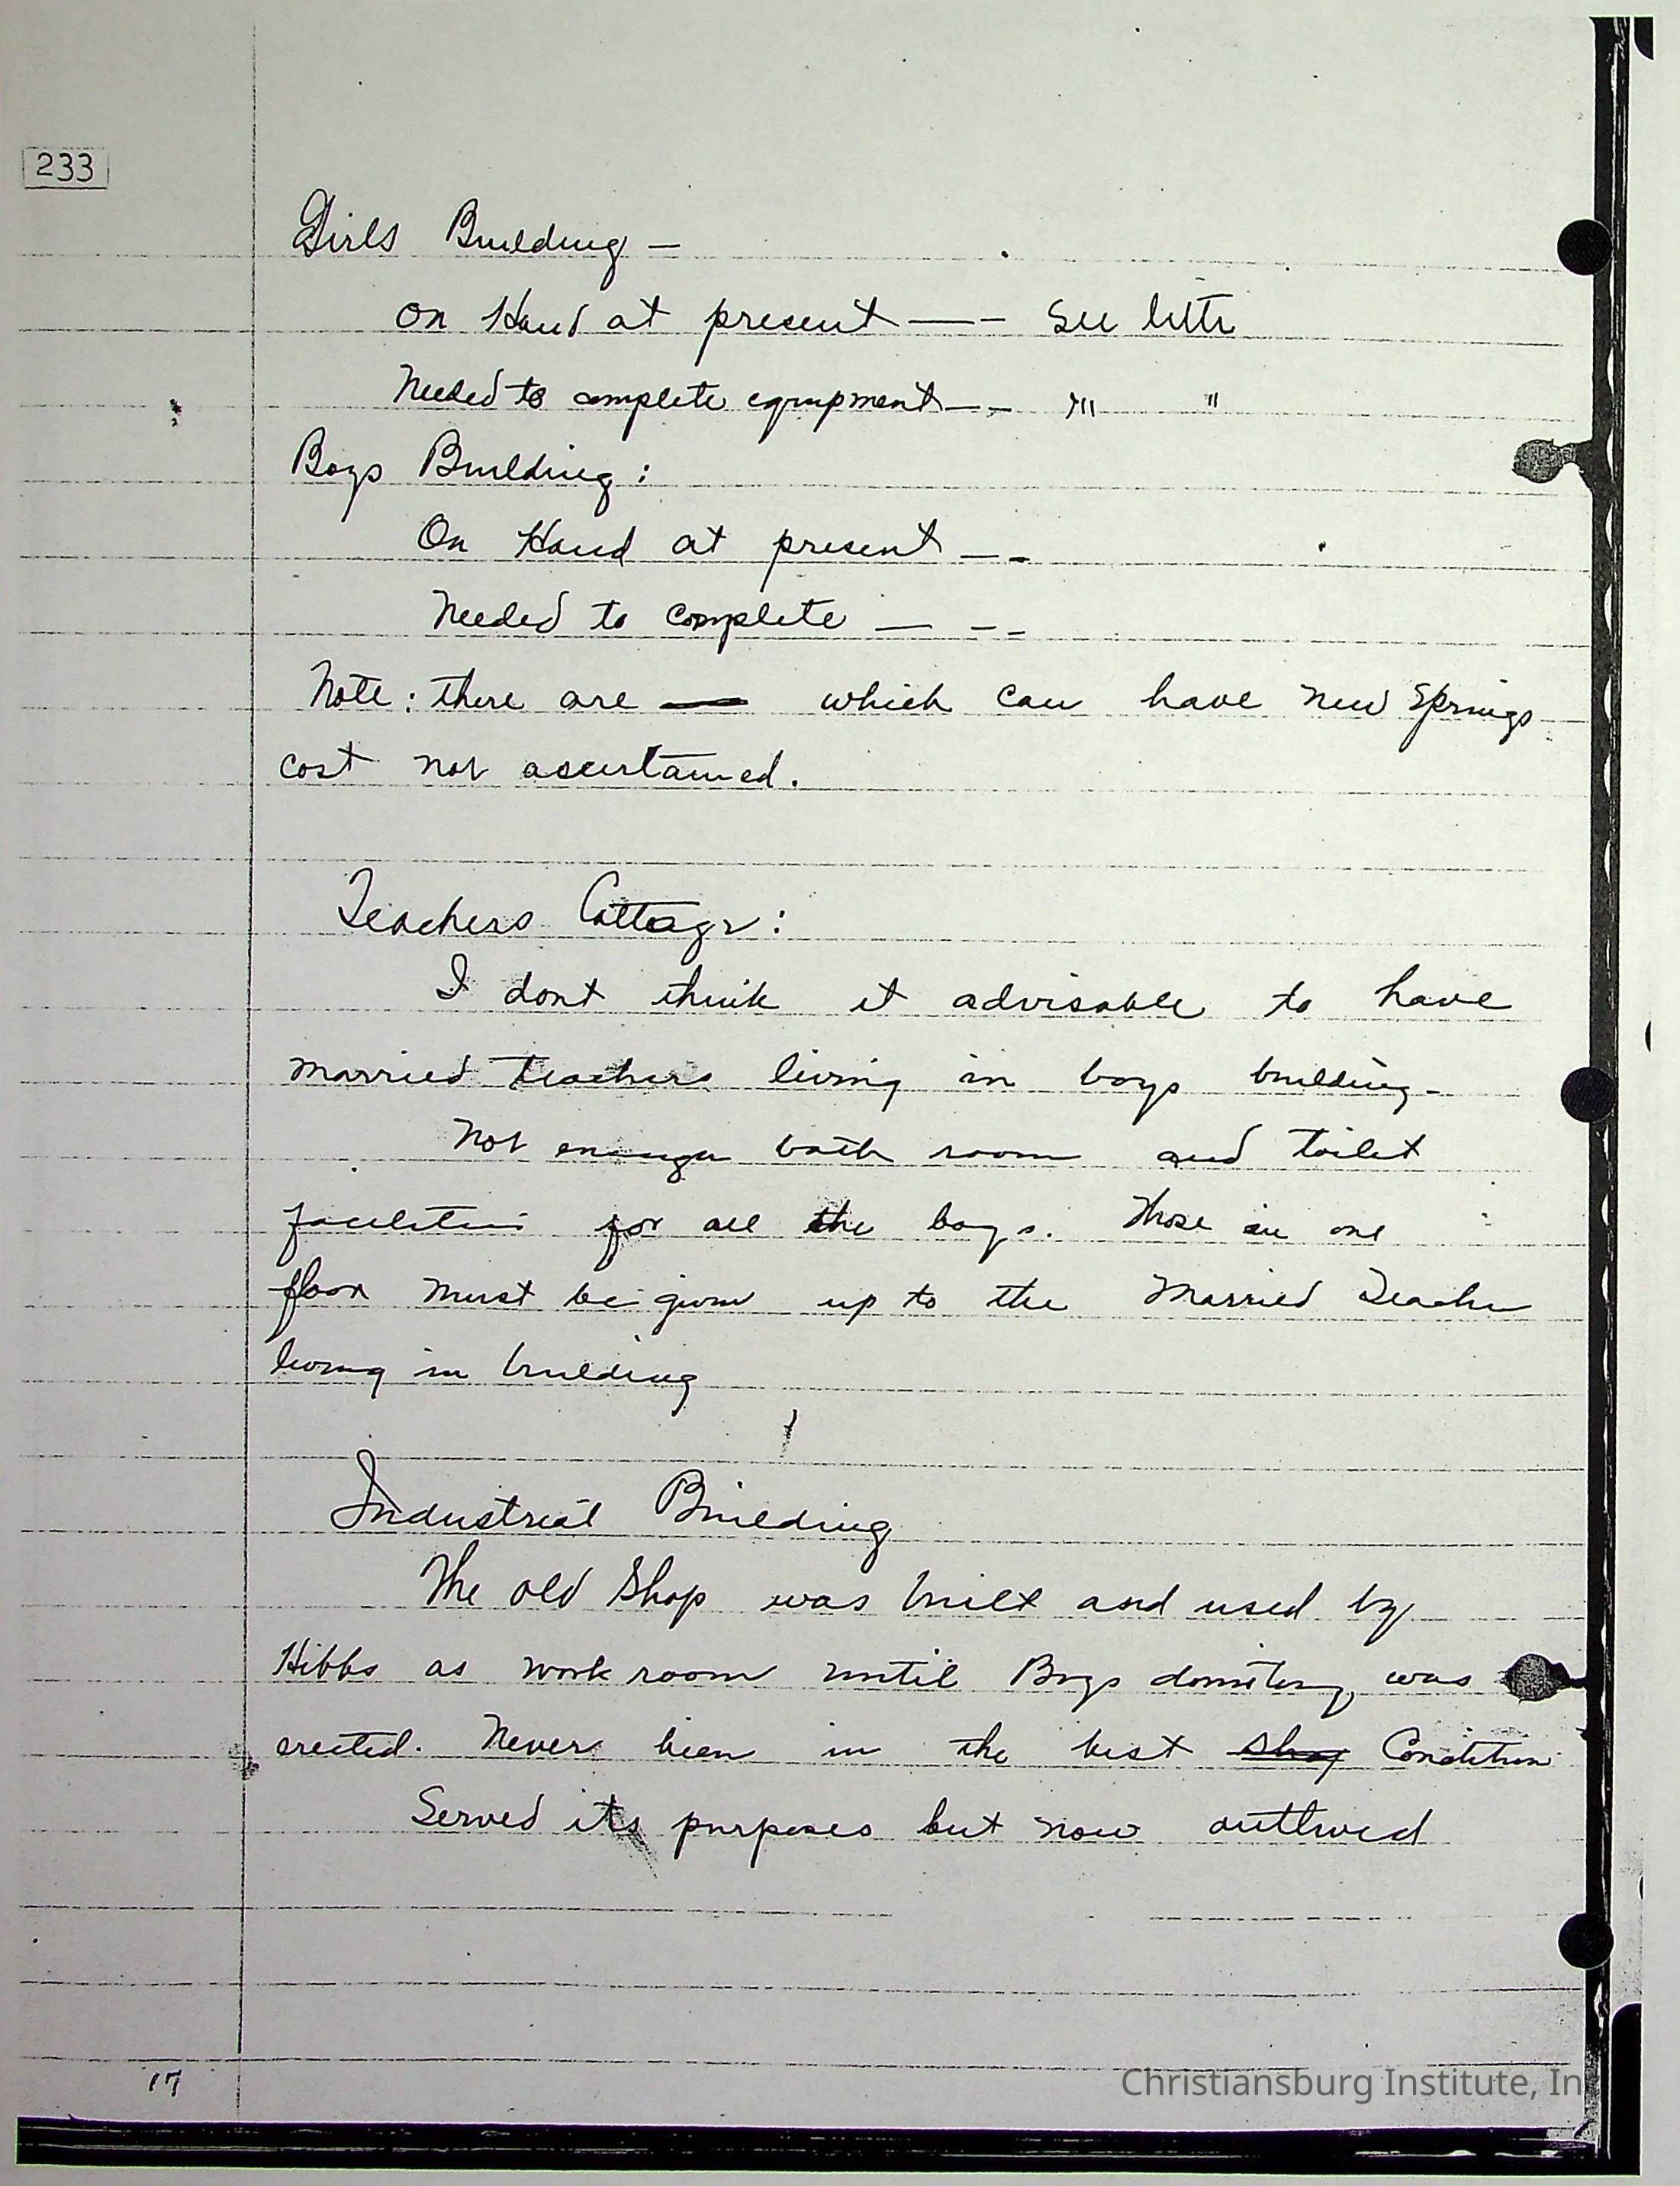 233
Girls Building —
On Hand at present —— See lette
Needed to complete equipment —— " "
Boys Building :
On Hand at present ——
Needed to complete — ——
Note : there are — which can have new springs
cost not ascertained.
Teachers Cottage :
I dont think it advisable to have
married teachers living in boys building.
Not enough bath room and toilet
facilities for all the boys. Those in one
floor must be given up to the Married Teacher
living in building
Industrial Building
The old Shop was built and used by
Hibbs as work room until Boys dormitory was
erected. Never been in the best shop Condition
Served its purposes but now outlived
17
Christiansburg Institute, In